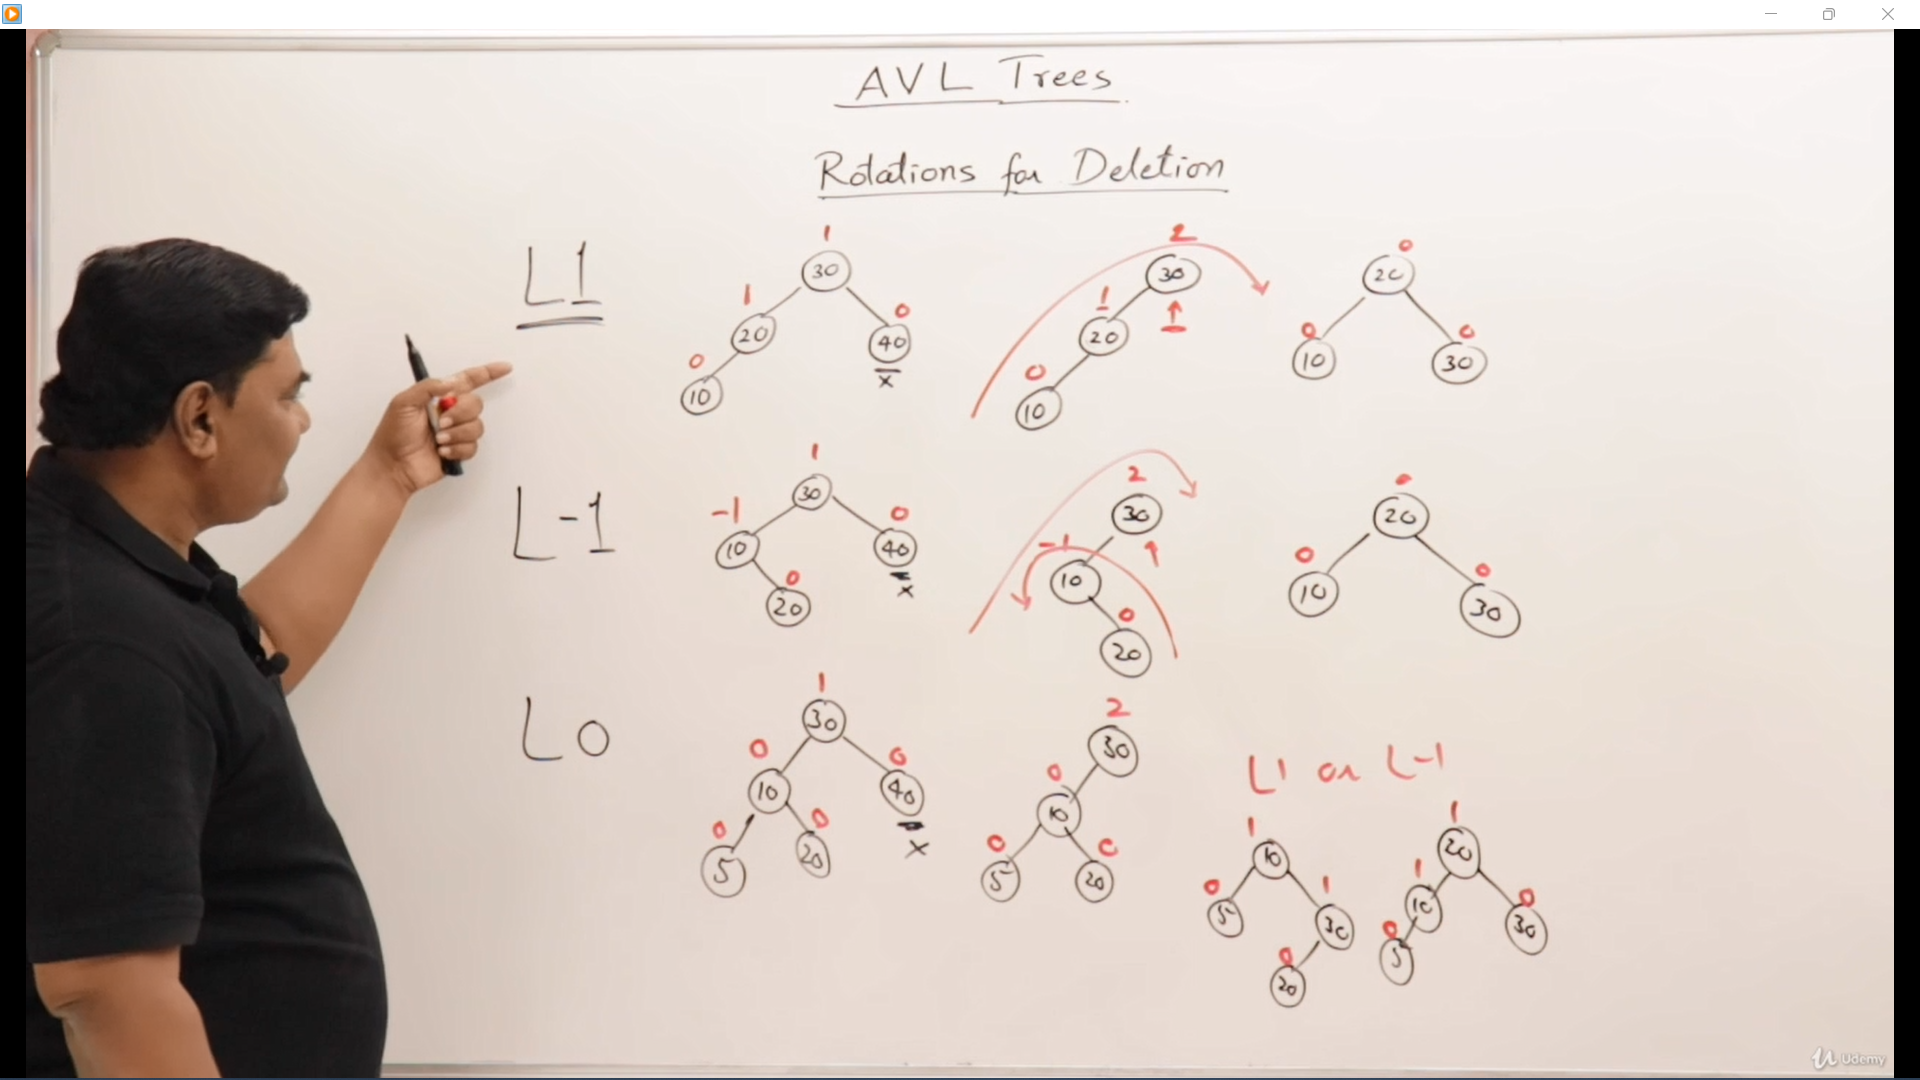 AVL Trees
Rotations for Deletion
L1
1
30
1
20
0
40
x
0
10
2
30
1
20
0
10
0
20
0
10
0
30
L-1
1
30
-1
10
0
40
x
0
20
2
30
-1
10
0
20
0
20
0
10
0
30
L0
1
30
0
10
0
40
x
0
5
0
20
2
30
0
10
0
5
0
20
L1 or L-1
1
10
0
5
1
30
0
20
1
20
1
10
0
30
0
5
Udemy